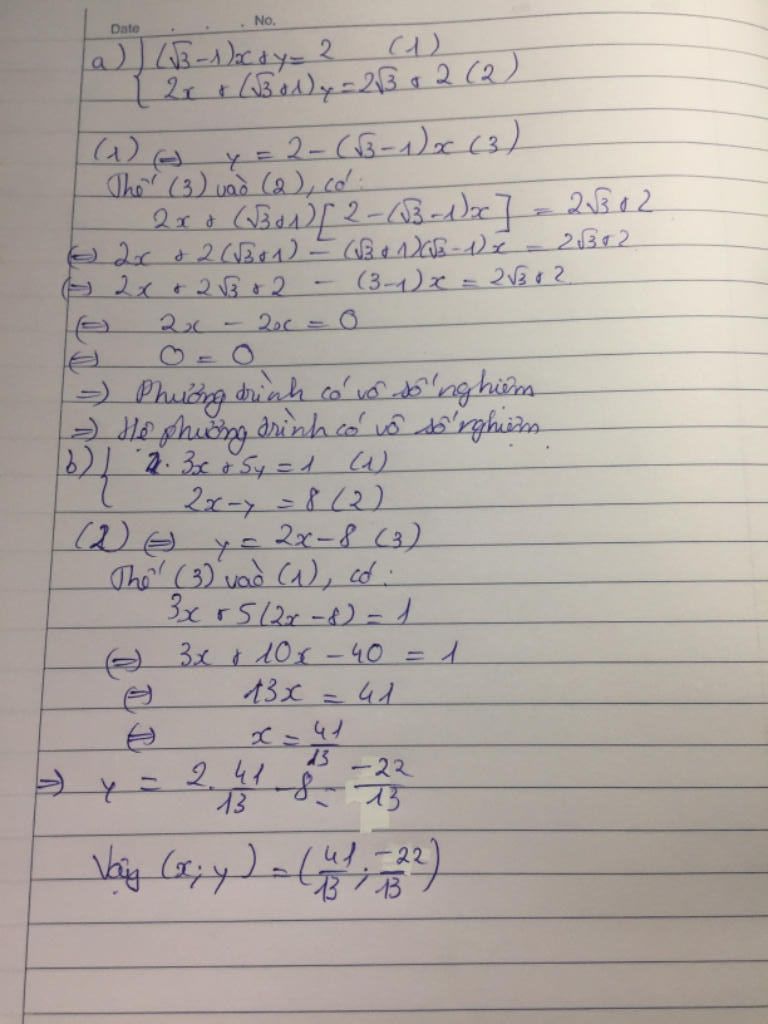 Date . . . No.
a) { (√3-1)x+y=2 (1)
2x + (√3+1)y=2√3+2 (2)
(1) ⇔ y = 2-(√3-1)x (3)
Thế (3) vào (2), có:
2x + (√3+1)[2-(√3-1)x] = 2√3+2
⇔ 2x + 2(√3+1) - (√3+1)(√3-1)x = 2√3+2
⇔ 2x + 2√3+2 - (3-1)x = 2√3+2
⇔ 2x - 2x = 0
⇔ 0 = 0
⇒ Phương trình có vô số nghiệm
⇒ Hệ phương trình có vô số nghiệm
b) { 3x + 5y = 1 (1)
2x-y = 8 (2)
(2) ⇔ y = 2x-8 (3)
Thế (3) vào (1), có:
3x + 5(2x-8) = 1
⇔ 3x + 10x - 40 = 1
⇔ 13x = 41
⇔ x = 41/13
⇒ y = 2. 41/13 - 8 = -22/13
Vậy (x; y) = (41/13; -22/13)